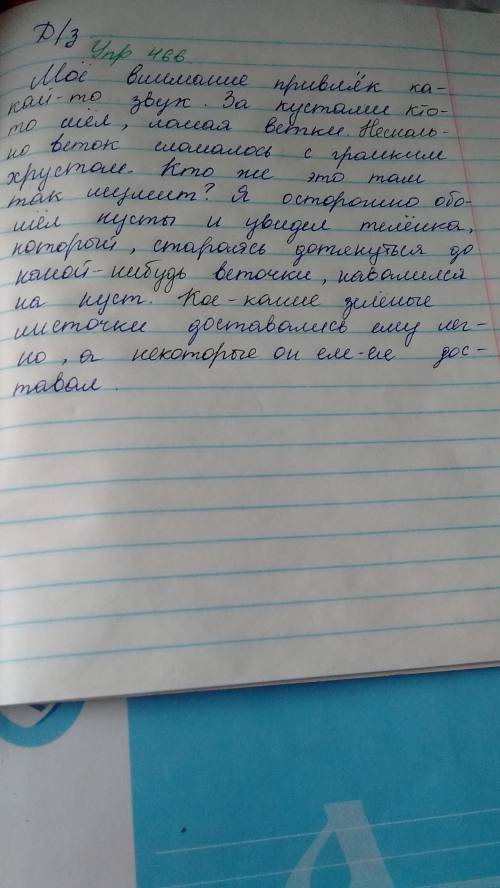 Д/з
Упр 466
Моё внимание привлёк ка-
кой-то звук. За кустами кто-
то шёл, ломая ветки. Несколь-
но веток сломалось с громким
хрустом. Кто же это там
так шумит? Я осторожно обо-
шёл кусты и увидел телёнка,
который, стараясь дотянуться до
какой-нибудь веточки, навалился
на куст. Кое-какие зелёные
листочки доставались ему лег-
ко, а некоторые он еле-еле дос-
тавал.